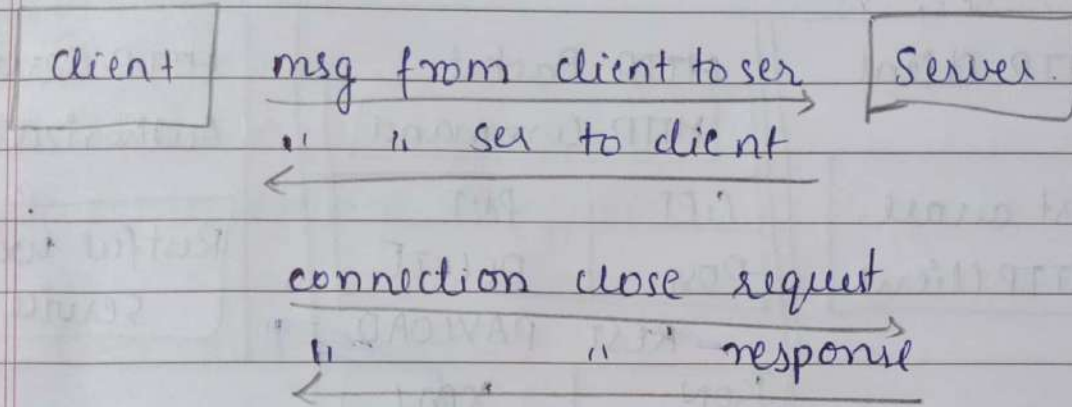 Client msg from client to ser Server.
" " ser to client
connection close request
" " response